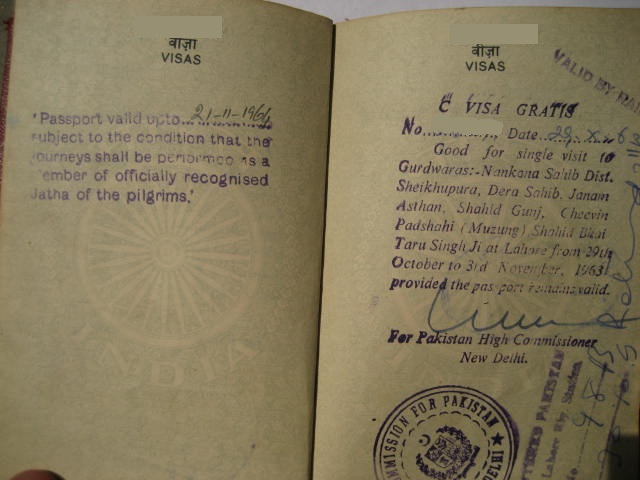 वीज़ा
VISAS
'Passport valid upto 21-11-1964
subject to the condition that the
journeys shall be performed as a
member of officially recognised
Jatha of the pilgrims.'
वीज़ा
VISAS
VALID BY RAI
C VISA GRATIS
No. Date 29-X-63
Good for single visit to
Gurdwaras:-Nankana Sahib Dist.
Sheikhupura, Dera Sahib, Janam
Asthan, Shahid Gunj, Cheevin
Padshahi (Muzung) Shahid Bhai
Taru Singh Ji at Lahore from 29th
October to 3rd November, 1963
provided the passport remains valid.
For Pakistan High Commissioner
New Delhi.
MMISSION FOR PAKISTAN
DELHI
PAKISTAN
Lahore Rly. Station